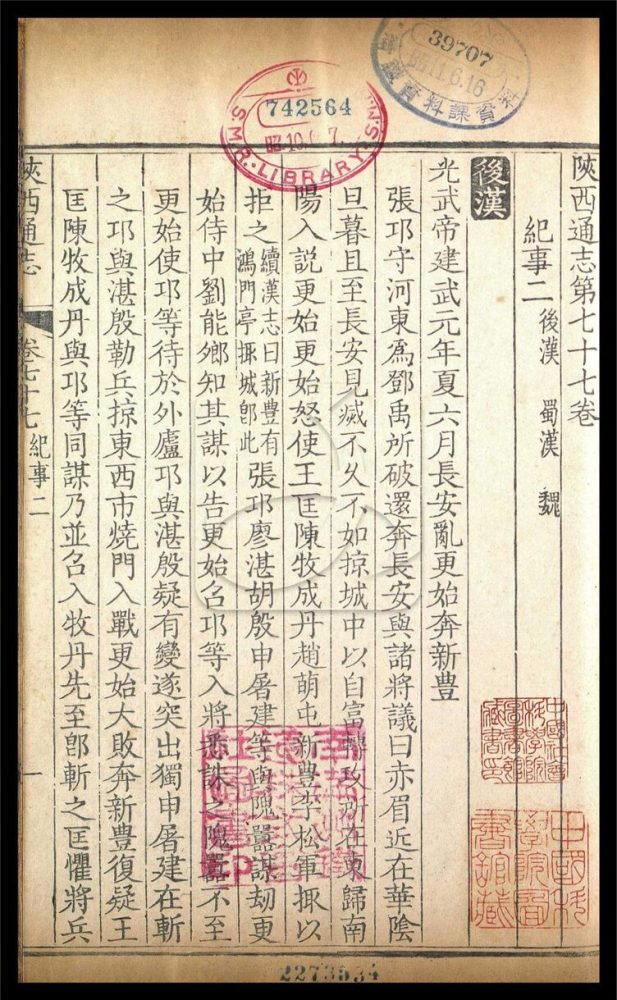 陝西通志第七十七卷
紀事二 後漢 蜀漢 魏
後漢
光武帝建武元年夏六月長安亂更始奔新豐
張邛守河東爲鄧禹所破還奔長安與諸將議曰赤眉近在華陰
旦暮且至長安見滅不久不如掠城中以自富轉攻所在東歸南
陽入說更始更始怒使王匡陳牧成丹趙萌屯新豐李松軍掫以
拒之續漢志曰新豐有鴻門亭掫城卽此張邛廖湛胡殷申屠建等與隗囂謀劫更
始侍中劉能鄉知其謀以告更始召邛等入將悉誅之隗囂不至
更始使邛等待於外廬邛與湛殷疑有變遂突出獨申屠建在斬
之邛與湛殷勒兵掠東西市燒門入戰更始大敗奔新豐復疑王
匡陳牧成丹與邛等同謀乃並召入牧丹先至卽斬之匡懼將兵
陝西通志 卷七十七 紀事二 一
742564
S.M.R. LIBRARY
39707
2273534